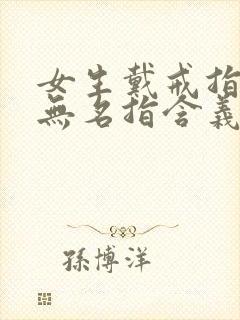 女生戴戒指
無名指含義
孫博洋